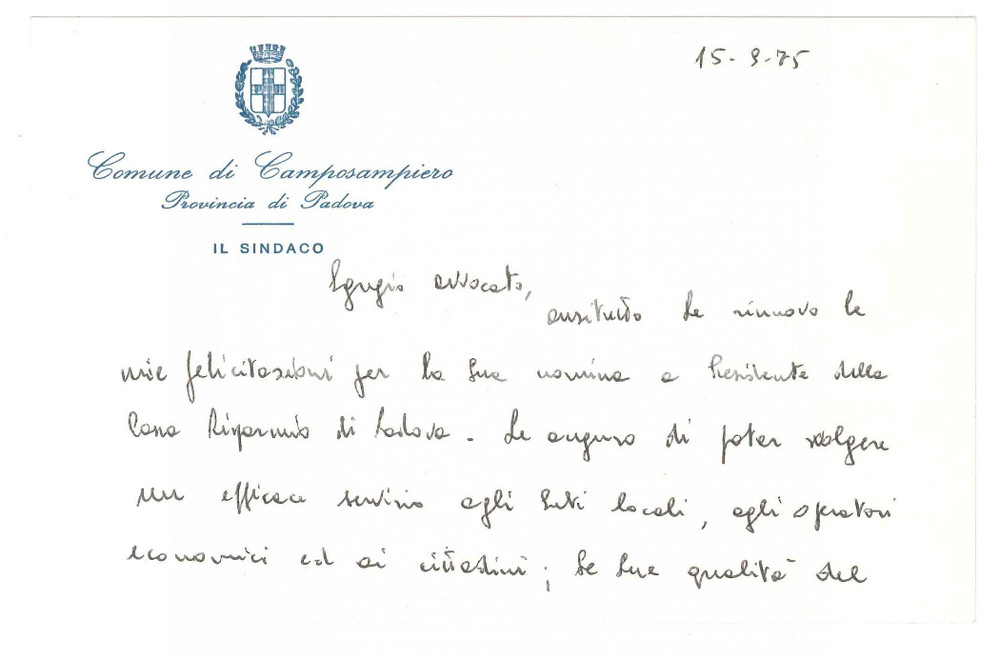 15-9-75
Comune di Camposampiero
Provincia di Padova
IL SINDACO
Egregio avvocato,
anzitutto Le rinnovo le
mie felicitazioni per la Sua nomina a Presidente della
Cassa Risparmio di Padova. Le auguro di poter svolgere
un efficace servizio agli Enti locali, agli operatori
economici ed ai cittadini; le Sue qualità del